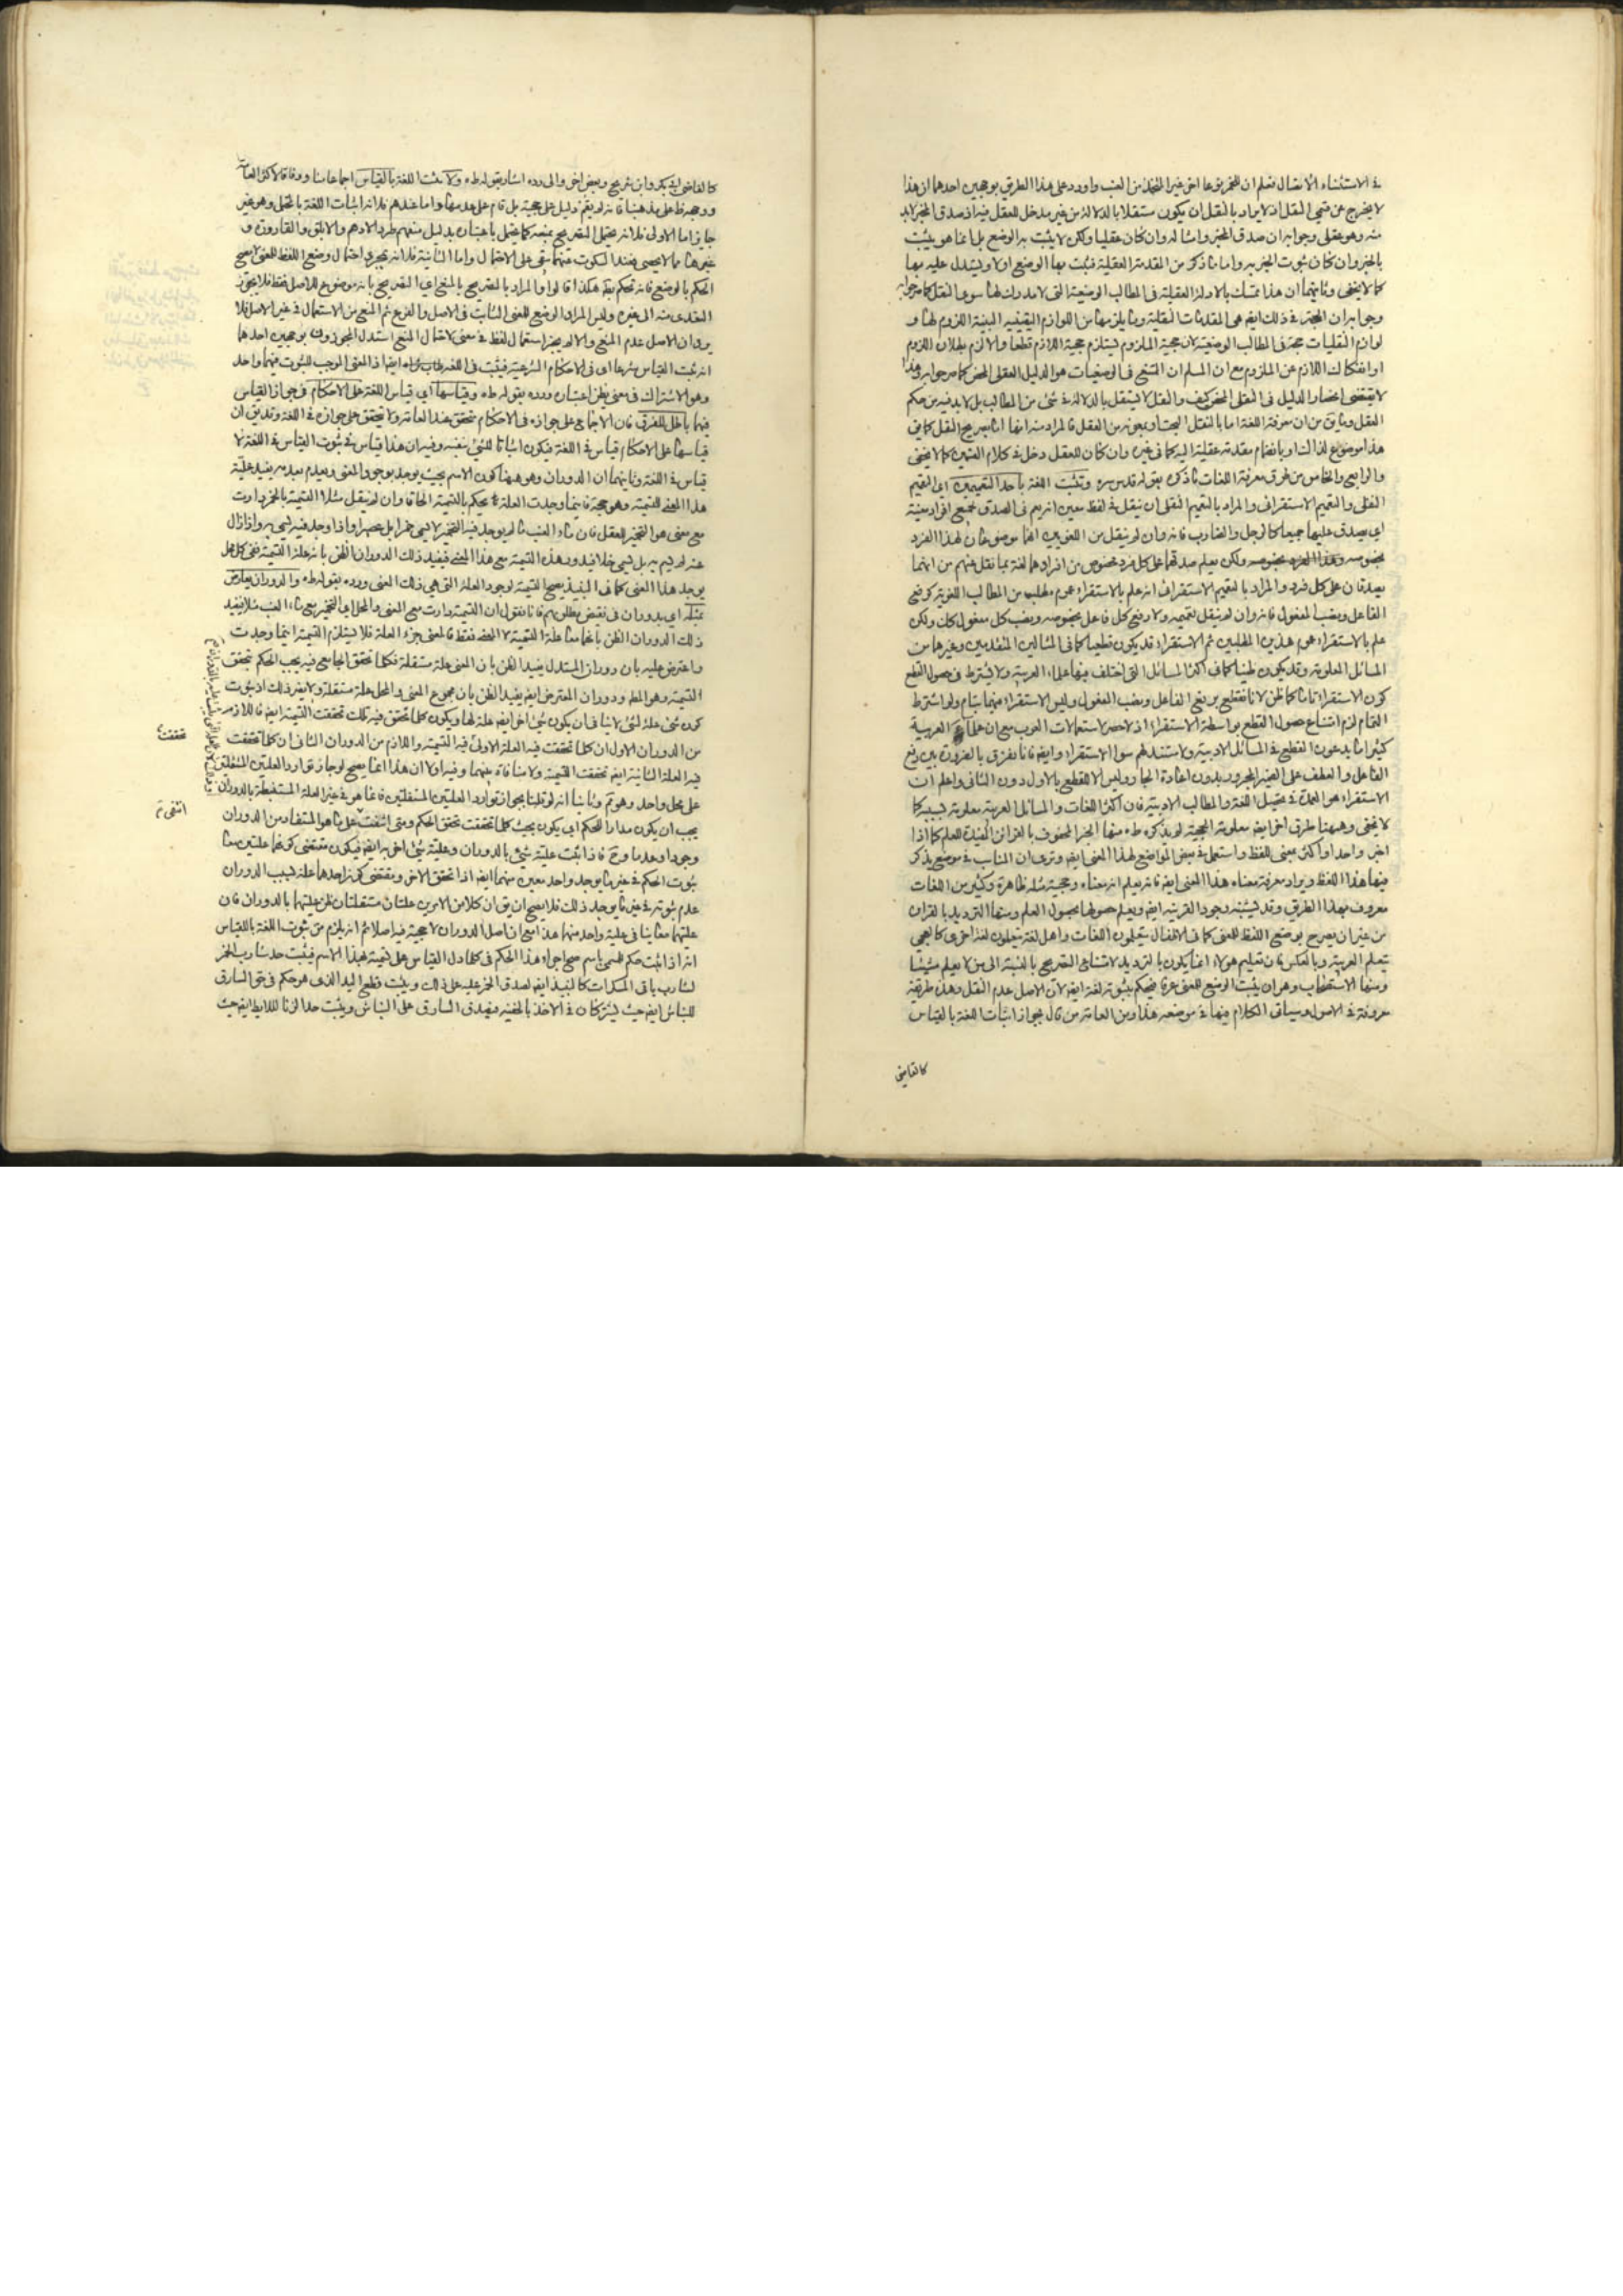 في الاستثناء الاتصال نعلم ان للتخريق عا اخر غير المتخذ من العنب واورد على هذا الطريق بوجهين احدهما ان هذا
لا يخرج عن قسمي النقل اذ لا يراد بالنقل ان يكون مستقلا بالدلالة من غير مدخل للعقل فيه اذ صدق المخبر لابد
منه وهو عقلي وجوابه ان صدق المخبر وامثاله وان كان عقليا ولكن لا يثبت به الوضع بل انما هو يثبت
بالخبر وان كان ثبوت الخبر به واما ما ذكر من المقدمة العقلية فيثبت بها الوضع اولا ويستدل عليه بها
كما لا يخفى وثانيهما ان هذا تمسك بالادلة العقلية في المطالب الوضعية التي لا مدرك لها سوى النقل كما مر جوابه
وجوابه ان الحجة في ذلك ايض هي المقدمات النقلية وما يلزمها من اللوازم اليقينية البينة اللزوم لها و
لوازم النقليات حجة في المطالب الوضعية لان حجية الملزوم يستلزم حجية اللازم قطعا والا لزم بطلان اللزوم
او انفكاك اللازم عن الملزوم مع ان المسلم ان المتبع في الوضعيات هو الدليل العقلي المحض كما مر جوابه وهذا
لا يقتضي انحصار الدليل في النقلي المحض كيف والنقل لا يستقل بالدلالة في شئ من المطالب بل لابد فيه من حكم
العقل وما في من ان معرفة اللغة اما بالنقل البحت او بمعونة من العقل فالمراد منه انها اما بصريح النقل كما في
هذا موضوع لذاك او بانضمام مقدمة عقلية اليه كما في غيره وان كان للعقل دخل في كلام القسمين كما لا يخفى
والرابع والخامس من طرق معرفة اللغات ما ذكره بقوله قدس سره وتثبت اللغة باحد التعميمين اي التعميم
النقلي والتعميم الاستقرائي والمراد بالتعميم النقلي ان ينقل في لفظ معين انه يعم في الصدق لجميع افراد معينة
اي يصدق عليها جميعا كالرجل والضارب فانه وان لم ينقل من اللغويين انهما موضوعان لهذا الفرد
بخصوصه ولكن نعلم صدقهما على كل فرد مخصوص من افرادهما لغة بما نقل عنهم من انهما
يصدقان على كل فرد والمراد بالتعميم الاستقرائي انه علم بالاستقراء عموم مطلب من المطالب اللغوية كرفع
الفاعل ونصب المفعول فانه وان لم ينقل تعميمه ولا رفع كل فاعل بخصوصه ونصب كل مفعول كك ولكن
علم بالاستقراء عموم هذين المطلبين ثم الاستقراء قد يكون قطعيا كما في المثالين المتقدمين وغيرهما من
المسائل المعلومة وقد يكون ظنيا كما في اكثر المسائل التي اختلف فيها علماء العربية ولا يشترط في حصول القطع
كون الاستقراء تاما كما ظن لانا نقطع برفع الفاعل ونصب المفعول وليس الاستقراء فيهما بتام ولو اشترط
التمام لزم امتناع حصول القطع بواسطة الاستقراء اذ لا حصر لاستعمالات العرب مع ان علماء العربية
كثيرا ما يدعون القطع في المسائل الادبية ولا مستند لهم سوى الاستقراء وايض فانا نفرق بالضرورة بين رفع
الفاعل والعطف على الضمير المجرور بدون اعادة الجار وليس الا للقطع بالاول دون الثاني واعلم ان
الاستقراء هو العمدة في تحصيل اللغة والمطالب الادبية فان اكثر اللغات والمسائل العربية معلومة بسببه كما
لا يخفى وههنا طرق اخر ايض معلومة الحجية لم يذكره ط منها الخبر المحفوف بالقرائن المفيدة للعلم كما اذا
اخبر واحد او اكثر بمعنى للفظ واستعمل في بعض المواضع لهذا المعنى ايض وترى ان المناسب في موضع يذكر
فيها هذا اللفظ ويراد معرفة معناه هذا المعنى ايض فانه يعلم انه معناه وحجية مثله ظاهرة وكثير من اللغات
معروف بهذا الطريق وقد يشتبه وجود القرينة ايض ويعلم حصولها بحصول العلم ومنها الترديد بالقرائن
من غير ان يصرح بوضع اللفظ للمعنى كما في الاطفال يتعلمون اللغات واهل لغة يتعلمون لغة اخرى كالعجمي
يتعلم العربية وبالعكس فان تعليم هؤلاء انما يكون بالترديد لامتناع التصريح بالنسبة الى من لا يعلم شيئا
ومنها الاستصحاب وهو ان يثبت الوضع للمعنى عرفا فيحكم بثبوته لغة ايض لان الاصل عدم النقل وهذه طريقة
معروفة في الاصول وسياتي الكلام فيها في موضعه هذا ومن العامة من قال بجواز اثبات اللغة بالقياس
كالقاضي
كالقاضي ابي بكر وابن شريح وبعض اخر والى رده اشار بقوله ط ولا تثبت اللغة بالقياس اجماعا منا ووفاقا لاكثر العامة
ووجهه ظ على مذهبنا فانه لم يقم دليل على حجيته بل قام على عدمها واما عندهم فلانه اثبات اللغة بالمحتمل وهو غير
جايز اما الاولى فلانه يحتمل التصريح بمنعه كما يحتمل باعتباره بدليل منعهم طرد الادهم والابلق والقارورة و
غيرها مما لا يحصى فعند السكوت عنهما بقي على الاحتمال واما الثانية فلانه بمجرد احتمال وضع اللفظ للمعنى لا يصح
الحكم بالوضع فانه تحكم بط هكذا قالوا والمراد بالتصريح بالمنع اي التصريح بانه موضوع للاصل فقط فلا يجوز
التعدي منه الى غيره وليس المراد الوضع للمعنى الثابت في الاصل والفرع ثم المنع من الاستعمال في غير الاصل فلا
يرد ان الاصل عدم المنع والا لم يجز استعمال لفظ في معنى لاحتمال المنع استدل المجوزون بوجهين احدهما
انه ثبت القياس شرعا اي في الاحكام الشرعية فيثبت في اللغة ايضا اذ المعنى الموجب للثبوت فيهما واحد
وهو الاشتراك في معنى يظن اعتباره ورده بقوله ط وقياسها اي قياس اللغة على الاحكام في جواز القياس
فيهما باطل للفرق فان الاجماع على جوازه في الاحكام متحقق عند العامة ولا تحقق على جوازه في اللغة وقد يق ان
قياسها على الاحكام قياس في اللغة فيكون اثباتا للشئ بنفسه وفيه ان هذا قياس في ثبوت القياس في اللغة لا
قياس في اللغة وثانيهما ان الدوران وهو ههنا كون الاسم بحيث يوجد بوجود المعنى ويعدم بعدمه يفيد علية
هذا المعنى للتسمية وهو حجة فاينما وجدت العلة يحكم بالتسمية الحاقا وان لم ينقل مثلا التسمية بالخمر دارت
مع معنى هو التخمير للعقل فان ماء العنب ما لم يوجد فيه التخمير لا يسمى خمرا بل عصيرا واذا وجد فيه يسمى به واذا زال
عنه لم يسم به بل يسمى خلا فيدور هذه التسمية مع هذا المعنى فيفيد ذلك الدوران الظن بانه علة التسمية ففي كل محل
يوجد هذا المعنى كما في النبيذ يصح التسمية لوجود العلة التي هي ذلك المعنى ورده بقوله ط والدوران يعارض
بمثله اي بدوران في نقيض مطلوبهم فانا نقول ان التسمية دارت مع المعنى والمحل اي التخمير مع ماء العنب مثلا فيفيد
ذلك الدوران الظن بانهما معا علة التسمية لا المعنى فقط فالمعنى جزء العلة فلا يستلزم التسمية اينما وجدت
واعترض عليه بان دوران المستدل يفيد الظن بان المعنى علة مستقلة فكلما تحقق الجامع فيه يجب الحكم بتحقق
التسمية وهو المط ودوران المعترض ايض يفيد الظن بان مجموع المعنى والمحل علة مستقلة ولا يضر ذلك اذ ثبوت
كون شئ علة لشئ لا ينافي ان يكون شئ اخر ايض علة لها ويكون كلما تحقق فيه تلك تحققت التسمية ايض فاللازم
من الدوران الاول ان كلما تحققت فيه العلة الاولى فيه التسمية واللازم من الدوران الثاني ان كلما تحققت
فيه العلة الثانية ايض تحققت التسمية ولا منافاة بينهما وفيه اولا ان هذا انما يصح لو جاز توارد العلتين المستقلتين
على محل واحد وهو تم وثانيا انه لو قلنا بجواز توارد العلتين المستقلتين فانما هو في غير العلة المستنبطة بالدوران
يجب ان يكون مدارا للحكم اي يكون بحيث كلما تحققت تحقق الحكم ومتى انتفت على ما هو المستفاد من الدوران
وجودا وعدما وح فاذا ثبت علية شئ بالدوران وعلية شئ اخر به ايض فيكون مقتضى كونهما علتين معا
ثبوت الحكم في غير ما يوجد واحد معين منهما ايض اذا تحقق الاخر ومقتضى كون احدهما علة بسبب الدوران
عدم ثبوته في غير ما يوجد ذلك فلا يصح ان يق ان كلا من الامرين علتان مستقلتان ظن عليتهما بالدوران فان
عليتهما معا ينافي علية واحد منهما هذا مع ان اصل الدوران لا حجية فيه اصلا ثم انه يلزم من ثبوت اللغة بالقياس
انه اذا ثبت حكم لمسمى باسم صح اجراء هذا الحكم في كلما دل القياس على تسميته بهذا الاسم فيثبت حد شارب الخمر
لشارب باقي المسكرات كالنبيذ ايض لصدق الخمر عليه على ذلك ويثبت قطع اليد الذي هو حكم في حق السارق
للنباش ايض حيث يشتركان في الاخذ بالخفية فيصدق السارق على النباش ويثبت حد الزنا للايط ايض حيث
تحققت
انتفى تم